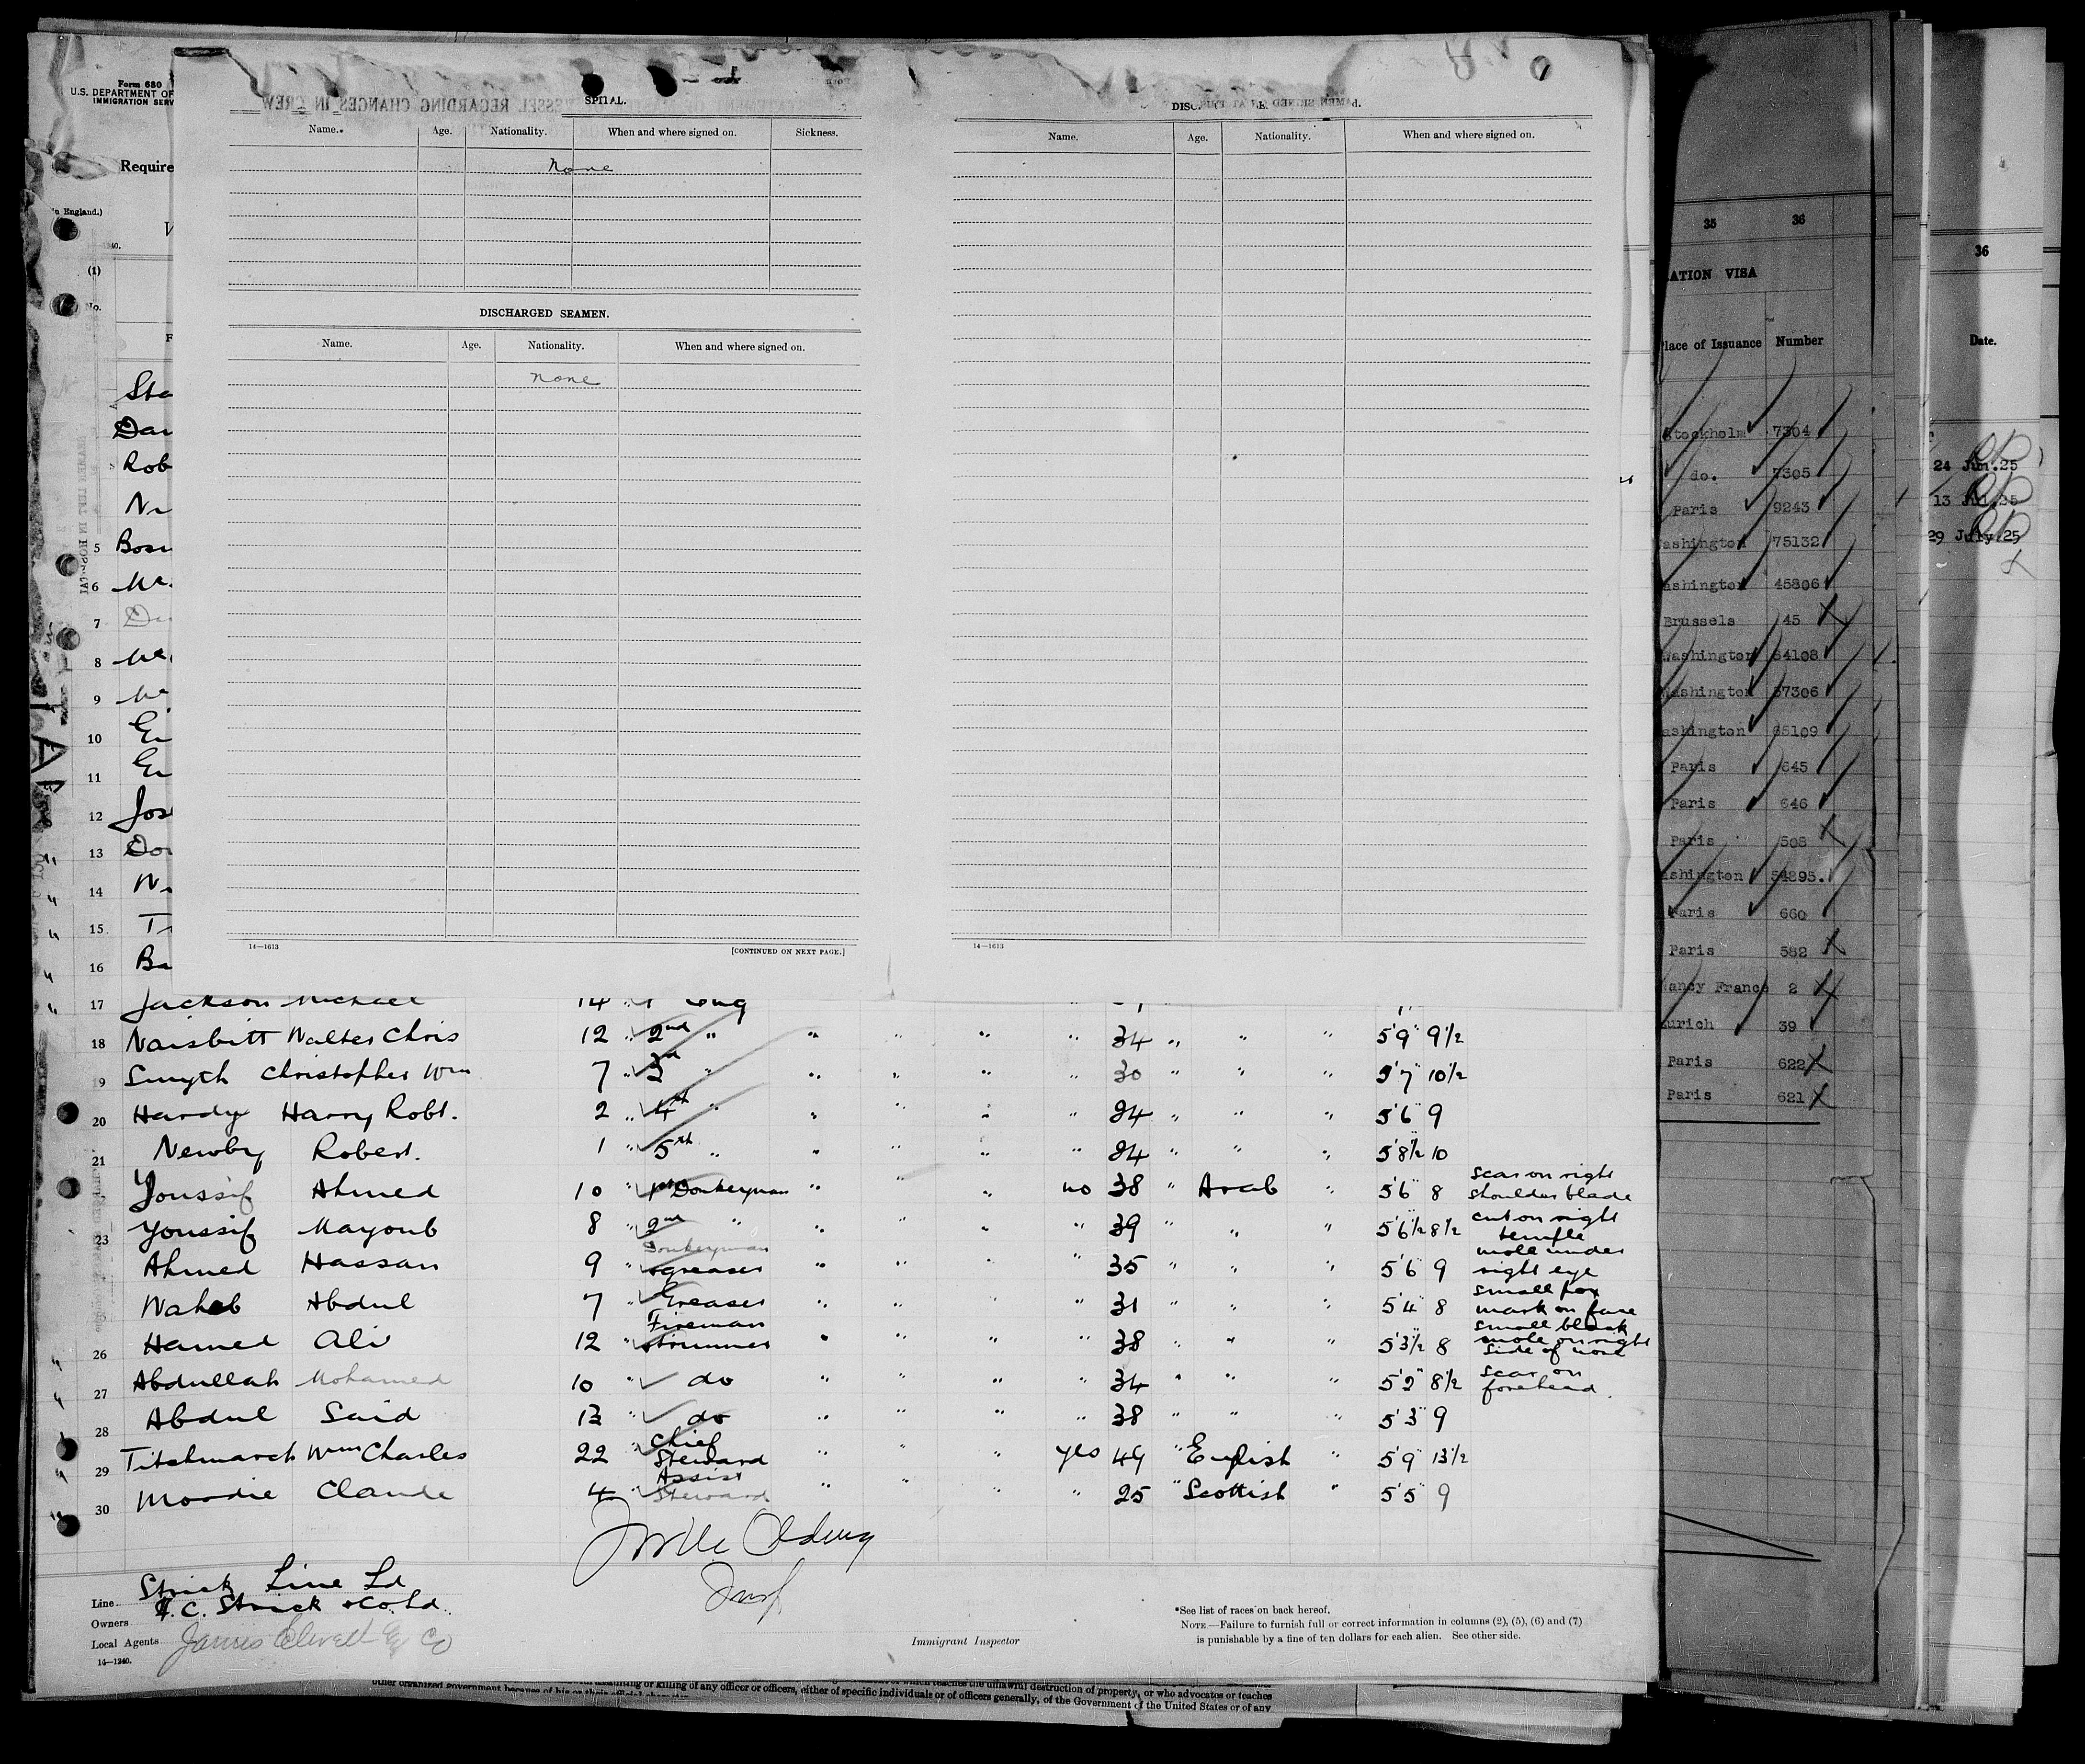 Form 680
U.S. DEPARTMENT OF
IMMIGRATION SERV
Require
(1)
No.
SPITAL.
Name. Age. Nationality. When and where signed on. Sickness.
None
DISCHARGED SEAMEN.
Name. Age. Nationality. When and where signed on.
none
14—1613 [CONTINUED ON NEXT PAGE.]
Name. Age. Nationality. When and where signed on.
14—1613
35 36
ATION VISA
lace of Issuance Number
Stockholm 7304
do. 7305
Paris 9243
ashington 75132
ashington 45806
Brussels 45
Washington 64108
Washington 67306
ashington 65109
Paris 645
Paris 646
Paris 508
shington 54895.
Paris 660
Paris 582
ancy France 2
urich 39
Paris 622
Paris 621
36
Date.
24 Jun.25
13 Jul.25
29 July.25
Sta
Dav
Rob
5 Bosu
6 Mc
7
8 Mc
9 Mc
10
11
12 Jos
13
14
15
16 Ba
17 Jackson Michael 14
18 Naisbitt Walter Chris 12 " 2nd " " " " " 34 " " " 5'9" 9½
19 Smyth Christopher Wm 7 " 3rd " " " " " 30 " " " 5'7" 10½
20 Hardy Harry Robt. 2 " 4th " " " " " 24 " " " 5'6" 9
21 Newby Robert. 1 " 5th " " " " " 24 " " " 5'8½ 10
Youssif Ahmed 10 " 1st Donkeyman " " " no 38 " Arab " 5'6" 8 scar on right shoulder blade
23 Youssif Mayoub 8 " 2nd " " " " " 39 " " " 5'6½ 8½ cut on right temple
Ahmed Hassan 9 " Donkeyman greaser " " " " 35 " " " 5'6" 9 mole under right eye
Wahab Abdul 7 " Greaser " " " " 31 " " " 5'4" 8 small pox mark on face
26 Hamed Ali 12 " Fireman trimmer " " " " 38 " " " 5'3½ 8 small black mole on right side of nose
27 Abdullah Mohamed 10 " do " " " " 34 " " " 5'2" 8½ scar on forehead.
28 Abdul Said 13 " do " " " " 38 " " " 5'3" 9
29 Titchmarch Wm Charles 22 " Chief Steward " " " yes 49 " English " 5'9" 13½
30 Moodie Claude 4 " Assist Steward " " " " 25 " Scottish " 5'5" 9
Line Strick Line Ld
Owners F.C. Strick & Co. Ld.
Local Agents James Elwell & Co
14—1240.
Immigrant Inspector
*See list of races on back hereof.
NOTE.—Failure to furnish full or correct information in columns (2), (5), (6) and (7)
is punishable by a fine of ten dollars for each alien. See other side.
or killing of any officer or officers, either of specific individuals or of officers generally, of the Government of the United States or of any